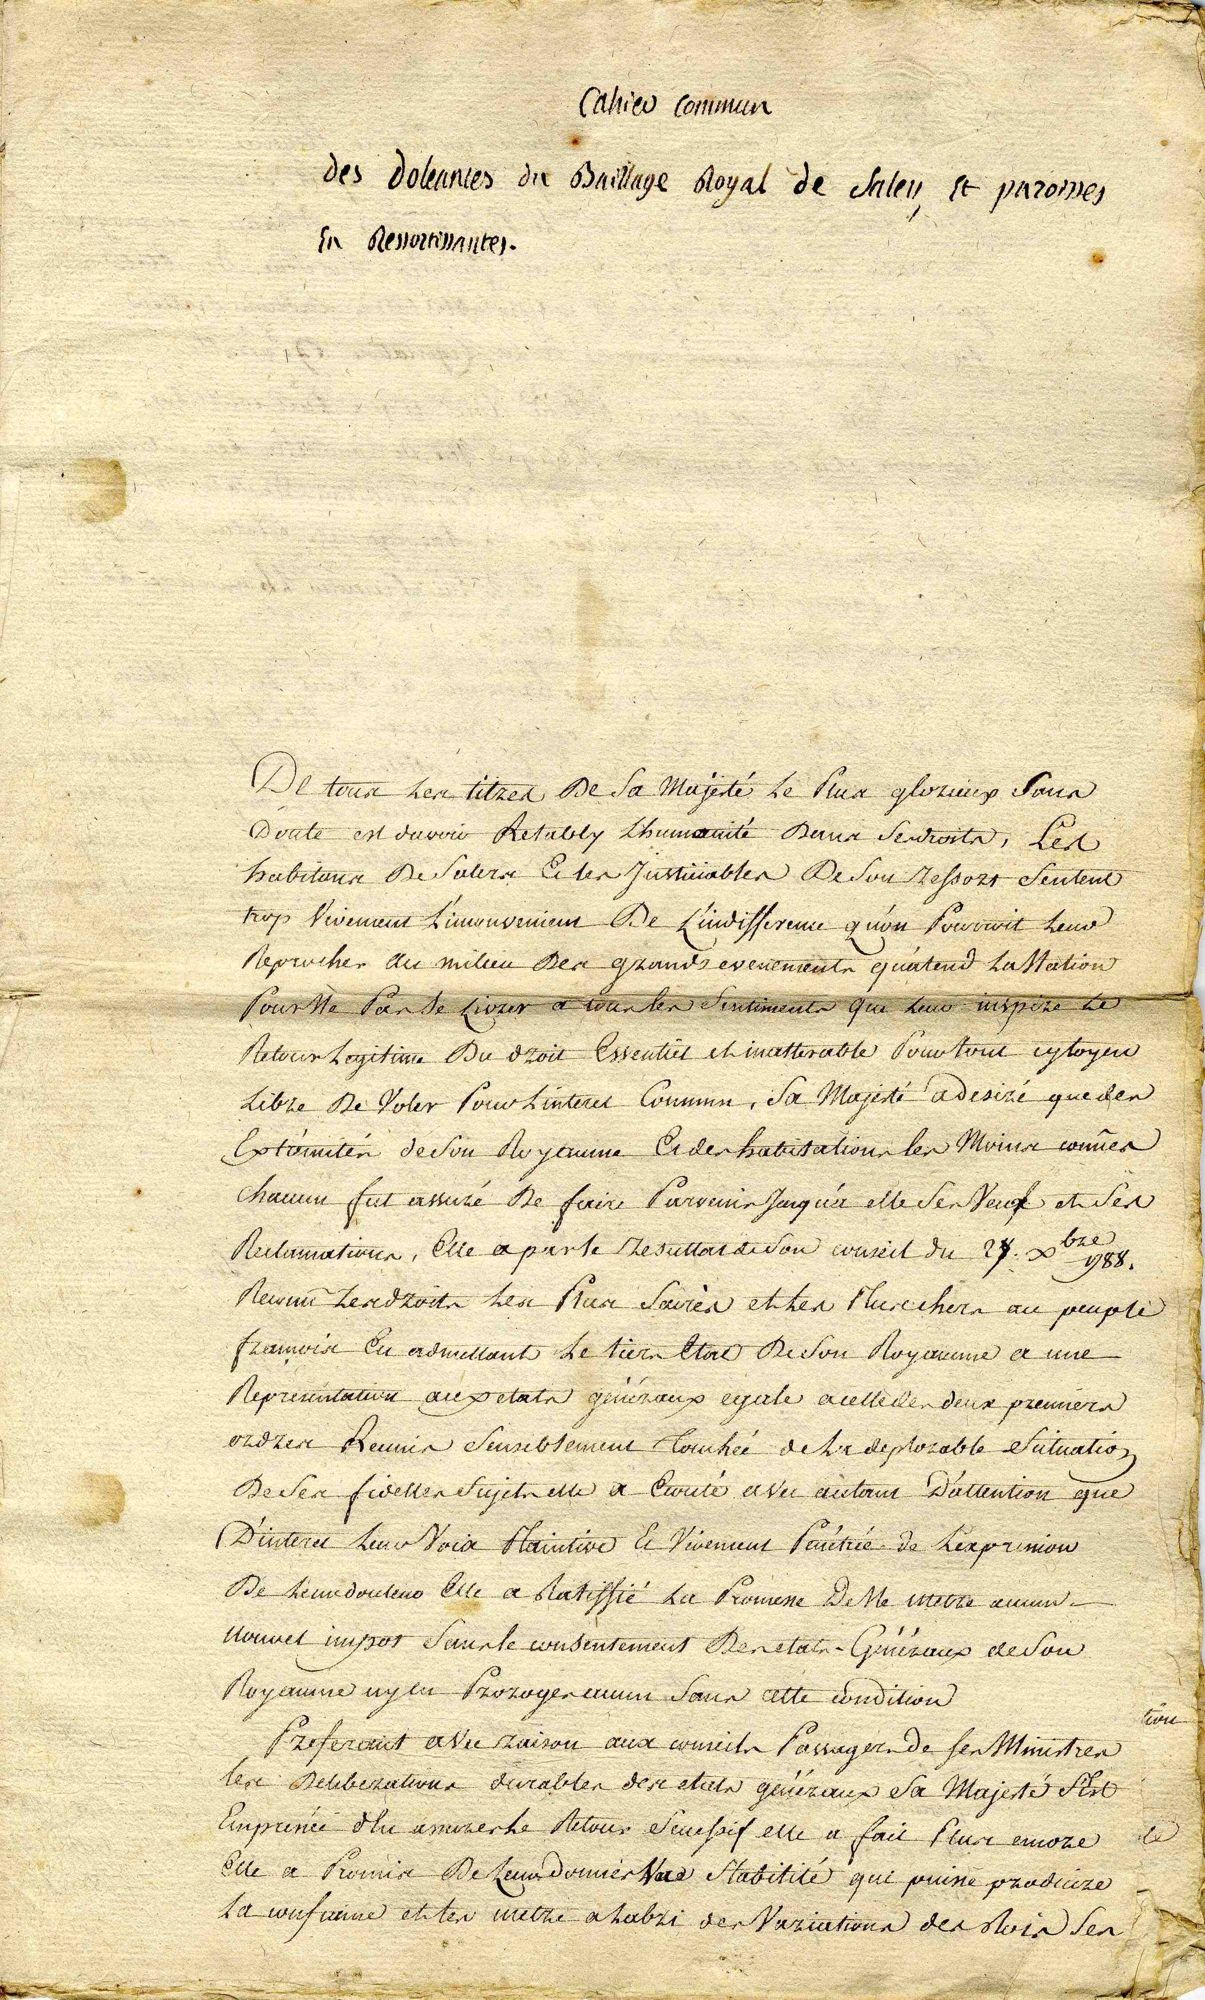 Cahier Commun
des doleances du Baillage Royal de Salers et paroisses
En Ressortissantes.
De tous les titres De Sa Majesté Le Plus glorieux Sans
Doute est davoir Retably Lhumanité Dans Ses droits, Les
habitans De Salers Et les Justiciables De Son ressort Sentent
trop Vivement L'inconvenient De L'indifference qu'on Pourroit Leur
Reprocher au milieu Des grands evenements qu'atend La Nation
Pour Ne Pas Se Livrer a tous les Sentiments que Leur inspire Le
Retour Legitime Du droit Essentiel et inalterable Pour tout cytoyen
Libre De Voler Pour Linteret Commun, Sa Majesté a desiré que des
Extremités de Son Royaume Et des habitations les Moins connües
chacun fut assuré De faire Parvenir Jusqu'a elle Ses Vœux et Ses
Reclamations, Elle a par le resultat de Son conseil du 27. xbre 1988.
Reconnu Les droits Les Plus Sacrés et Les Plus chers au peuple
françois En admettant Le tiers Etat De Son Royaume a une
Representation aux etats généraux egale a celle des deux premiers
ordres Reunis Sensiblement Touchée de La deplorable Situation
De Ses fidelles Sujets elle a Ecouté avec autant D'attention que
D'interet Leur Voix Plaintive Et Vivement Pénétrée de L'expression
De Leur douleur Elle a Ratiffié La Promesse De Ne mettre aucun
nouvel impot Sans le consentement Des etats-Généraux de Son
Royaume ny en Proroger aucun Sans cette condition
Preferant avec raison aux conseils Passagers de Ses Ministres
les Deliberations durables des etats généraux Sa Majesté S'est
Empressée d'en assurer le Retour Sucessif elle a fait Plus encore
Elle a Promis De Leur Donner Une Stabilité qui puisse produire
La confiance et les mettre a Labri des Variations des Rois Ses